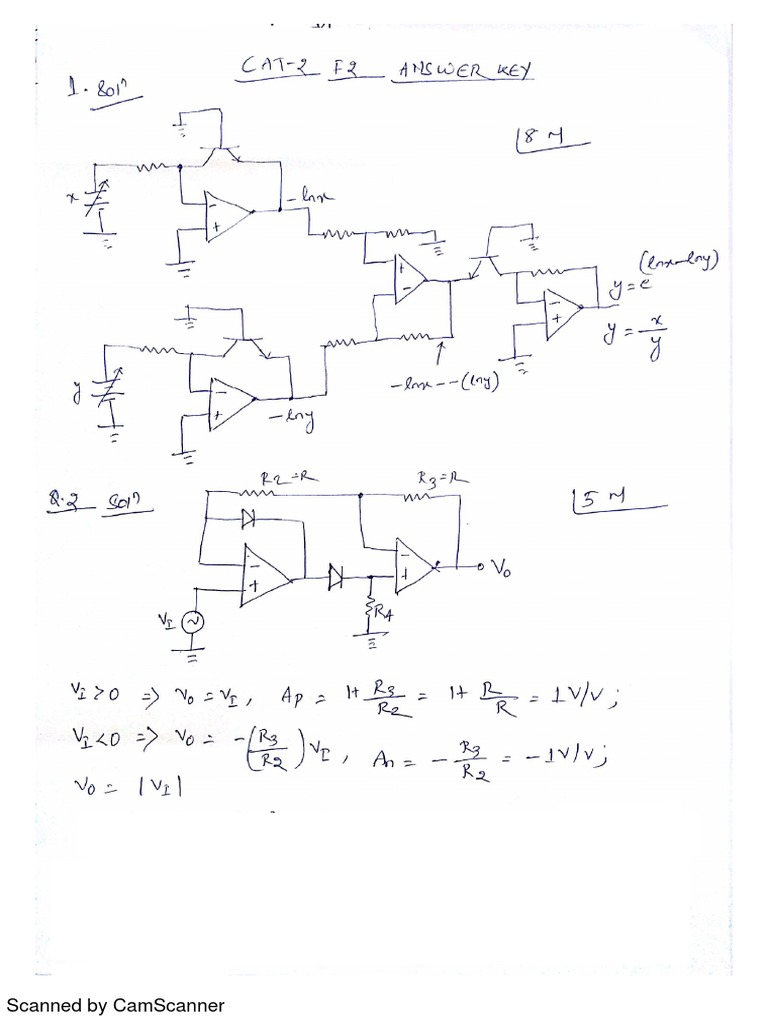 CAT-2 F2 ANSWER KEY
1. Solⁿ
8 M
x
-lnx
-
+
+
-
y = e^(lnx-lny)
-
+
y = x/y
y
-
+
-lny
-lnx--(lny)
Q.2 Solⁿ
R2=R
R3=R
5 M
-
+
-
+
Vo
R4
VI
VI>0 => vo = vI, Ap = 1+ R3/R2 = 1+ R/R = 1V/V;
VI<0 => vo = -(R3/R2) VI, An = - R3/R2 = -1V/V;
vo = |VI|
Scanned by CamScanner